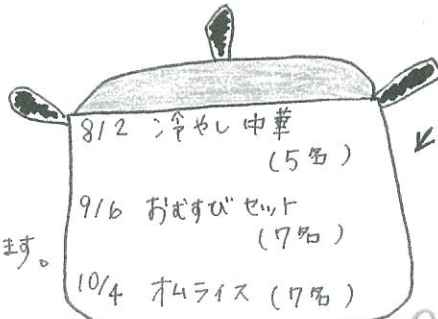 8/2 冷やし中華
(5名)
9/6 おむすびセット
(7名)
ます。
10/4 オムライス (7名)